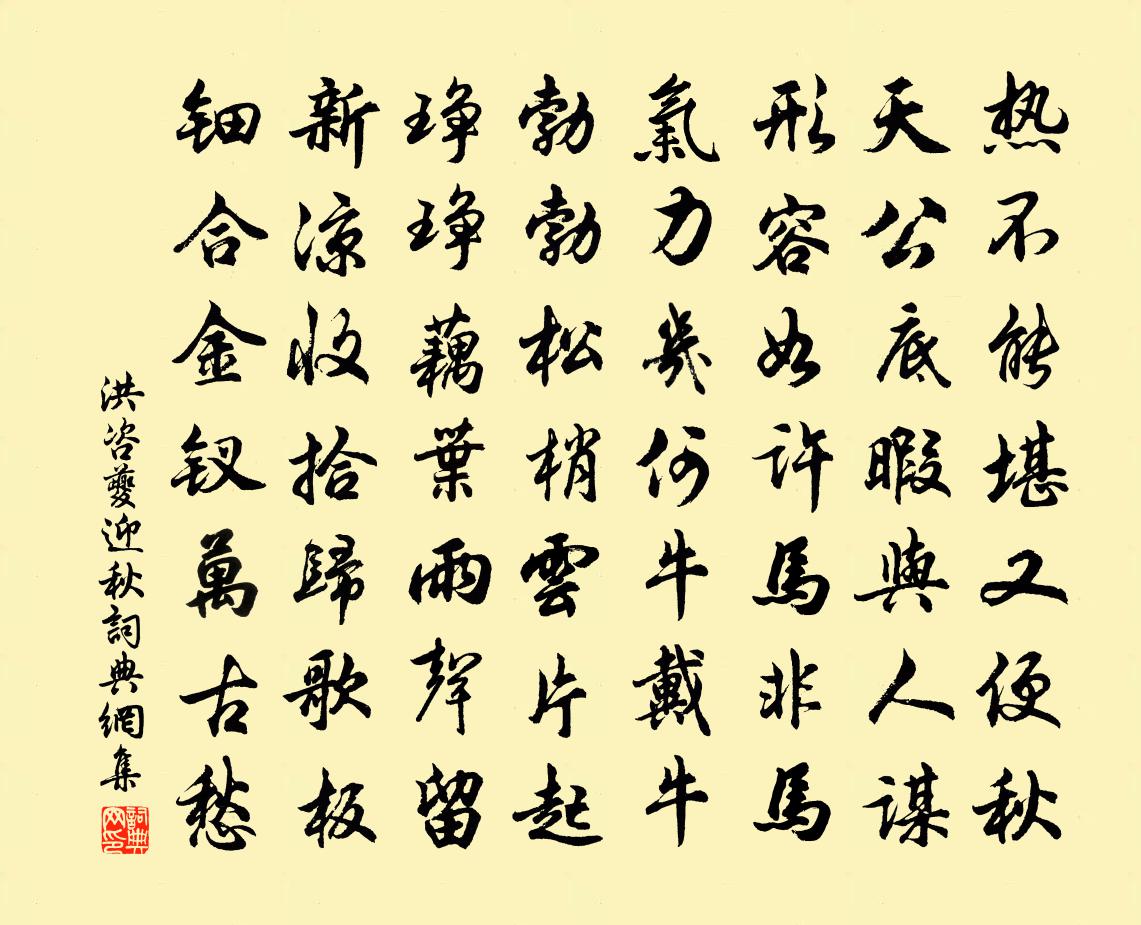 热不能堪又便秋
天公底暇與人謀
形容如许馬非馬
氣力幾何牛戴牛
勃勃松梢雲片起
琤琤藕葉雨聲留
新涼收拾歸歌板
钿合金钗萬古愁
洪咨夔迎秋詞典網集
詞典網印